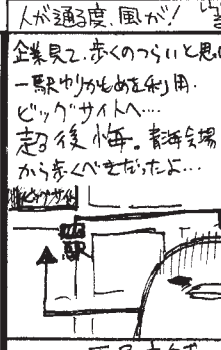 人が通る度、風が!
企業見て、歩くのつらいと思い
一駅ゆりかもめを利用.
ビッグサイトへ….
超後悔。青海会場
から歩くべきだったよ…
ビッグサイト
駅